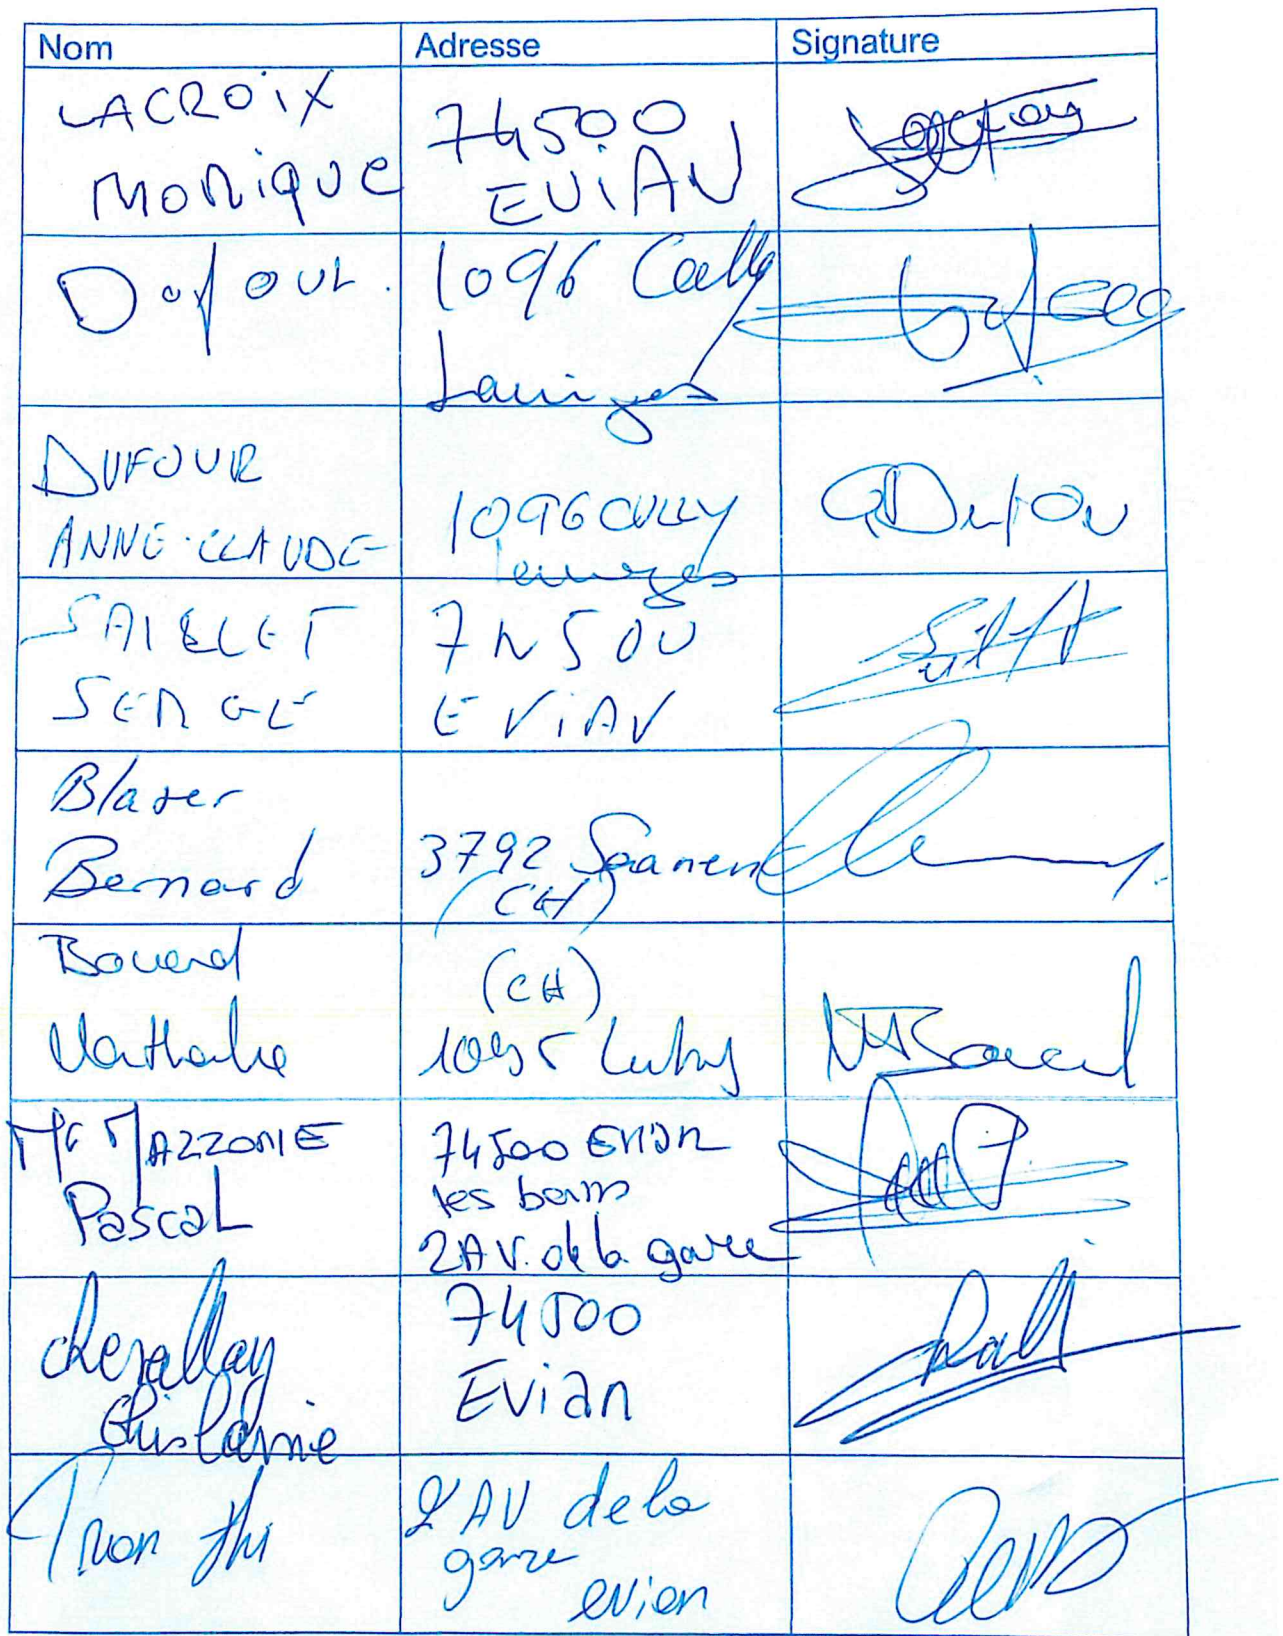 Nom Adresse Signature
LACROIX
MONIQUE
74500
EVIAN
Dufour.
1096 Cully
DUFOUR
ANNE-CLAUDE
1096 CULLY
SERGE
74500
EVIAN
Blaser
Bernard
3792 Saanen
(CH)
Bovard
Nathalie
(CH)
1095 Lutry
Mr MAZZONIE
Pascal
74500 Evian
les bains
2 AV. de la gare
Chevallay
Ghislaine
74500
Evian
Tran thi
2 AV de la
gare
evian